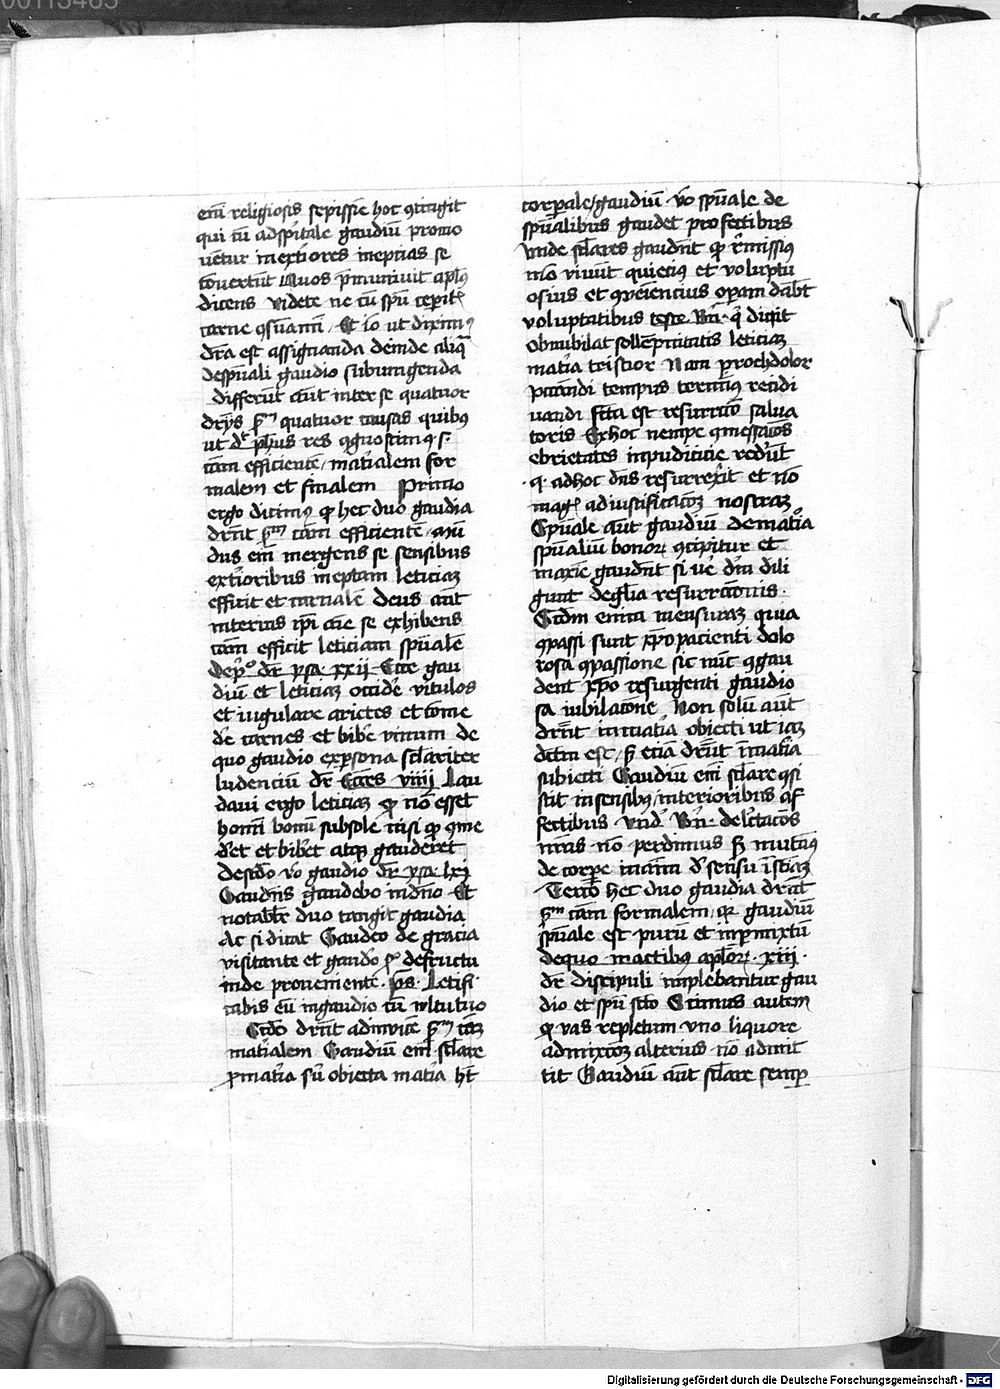 00113465
em̄ religiosis sepissīe hoc ꝯtingit
qui cū ad spūale gaudiū promo
uētur in extīores ineptias se
cōuertūt Quos p̄muniuit aplꝰs
dicens Videte ne cū spū ceperitꝭ
carne ꝯsūamī Et īo ut diximꝰ
dr̄a est assignanda deinde aliq̄
de spūali gaudio subiungenda
differūt aūt inter se quatuor
quatuor causas quibꝰ
ut phūs res ꝯgnoscimꝰ s.
cām efficientē, mat̄ialem for
malem et finalem Primo
ergo dicimꝰ qꝫ hec duo gaudia
drn̄t cām efficientē mū
dus em̄ mergens se sensibus
ext̄ioribus ineptam leticiaꝫ
efficit et carnalē Deus aūt
interius ip̄i aīe se exhibens
cām efficit leticiam spūalē
De pͦ dr̄ ysa. xxii Ecce gau
diū et leticiaꝫ occide vitulos
et iugulare arietes et come
de carnes et bibe vinum de
quo gaudio ex persona sc̄lariter
ludenciū dr̄ Eccēs viiij Lau
daui ergo leticiaꝫ qꝫ nō esset
homī bonū sub sole nisi qꝫ ꝯme
det et bibet atqꝫ gauderet
De scdo vͦo gaudio dr̄ ysa. lxj
Gaudēs gaudebo in dnō Et
notabilr duo tangit gaudia
Ac si dicat Gaudeo de gracia
visitante et gaudeo de fructu
inde proueniente. ps. Letifi
cabis eū in gaudio cū vultu tuo
Scdo drn̄t adinuicē cāꝫ
mat̄ialem Gaudiū em̄ sc̄lare
ꝓ mat̄ia sū obiecta mat̄ia hꝫ
corporale, gaudiū vͦo spūale de
spūalibus gaudet profectibus
Vnde sc̄lares gaudēt qꝫ
mō viuūt quieciꝰ et voluptu
osius et ꝯueīencius operam dabūt
voluptatibus teste Bn̄. qͥ dicit
obnubilat sollempnitatis leticiaꝫ
mat̄ia tristior Nam proch dolor
peccandi tempus terminꝰ recidi
uandi fc̄ta est resurrecō salua
toris Ex hoc nempe ꝯmessacōes
ebrietates inpudicicie redeūt
.q. ad hoc dn̄s resurrexīt et nō
magꝭ ad iustificacōꝫ nostraꝫ
Spūale aūt gaudiū de mat̄ia
spūaliū bonorꝫ ꝯcipitur et
maxīe gaudēt si ve dm̄ dili
gunt de gl̄ia resurreccōnis.
Scdm em̄ mensuraꝫ qua
ꝯpassi sunt xp̄o pacienti dolo
rosa ꝯpassione sic nūc ꝯgau
dent xp̄o resurgenti gaudio
sa iubilacōne Non solū aūt
drn̄t in mat̄ia obiecti ut iaꝫ
dictm est, sꝫ eciā drn̄t in mat̄ia
subiecti Gaudiū em̄ sc̄lare ꝯsi
stit in sensibꝰ, interioribus af
fectibus Vnd̄ Bn̄. delectacōes
nr̄as nō perdimus sꝫ mutamꝰ
de corpe in animā de sensu
Tercō hec duo gaudia drn̄t
cām formalem, qꝛ gaudiū
spūale est purū et inpermixtū
de quo in actibus aplorꝫ. xiij.
dr̄ Discipuli implebantur gau
dio et spū scto Scimus autem
qꝫ vas repletum vno liquore
admixcōꝫ alterius nō admit
tit Gaudiū aūt sc̄lare semp̄
Digitalisierung gefördert durch die Deutsche Forschungsgemeinschaft - DFG